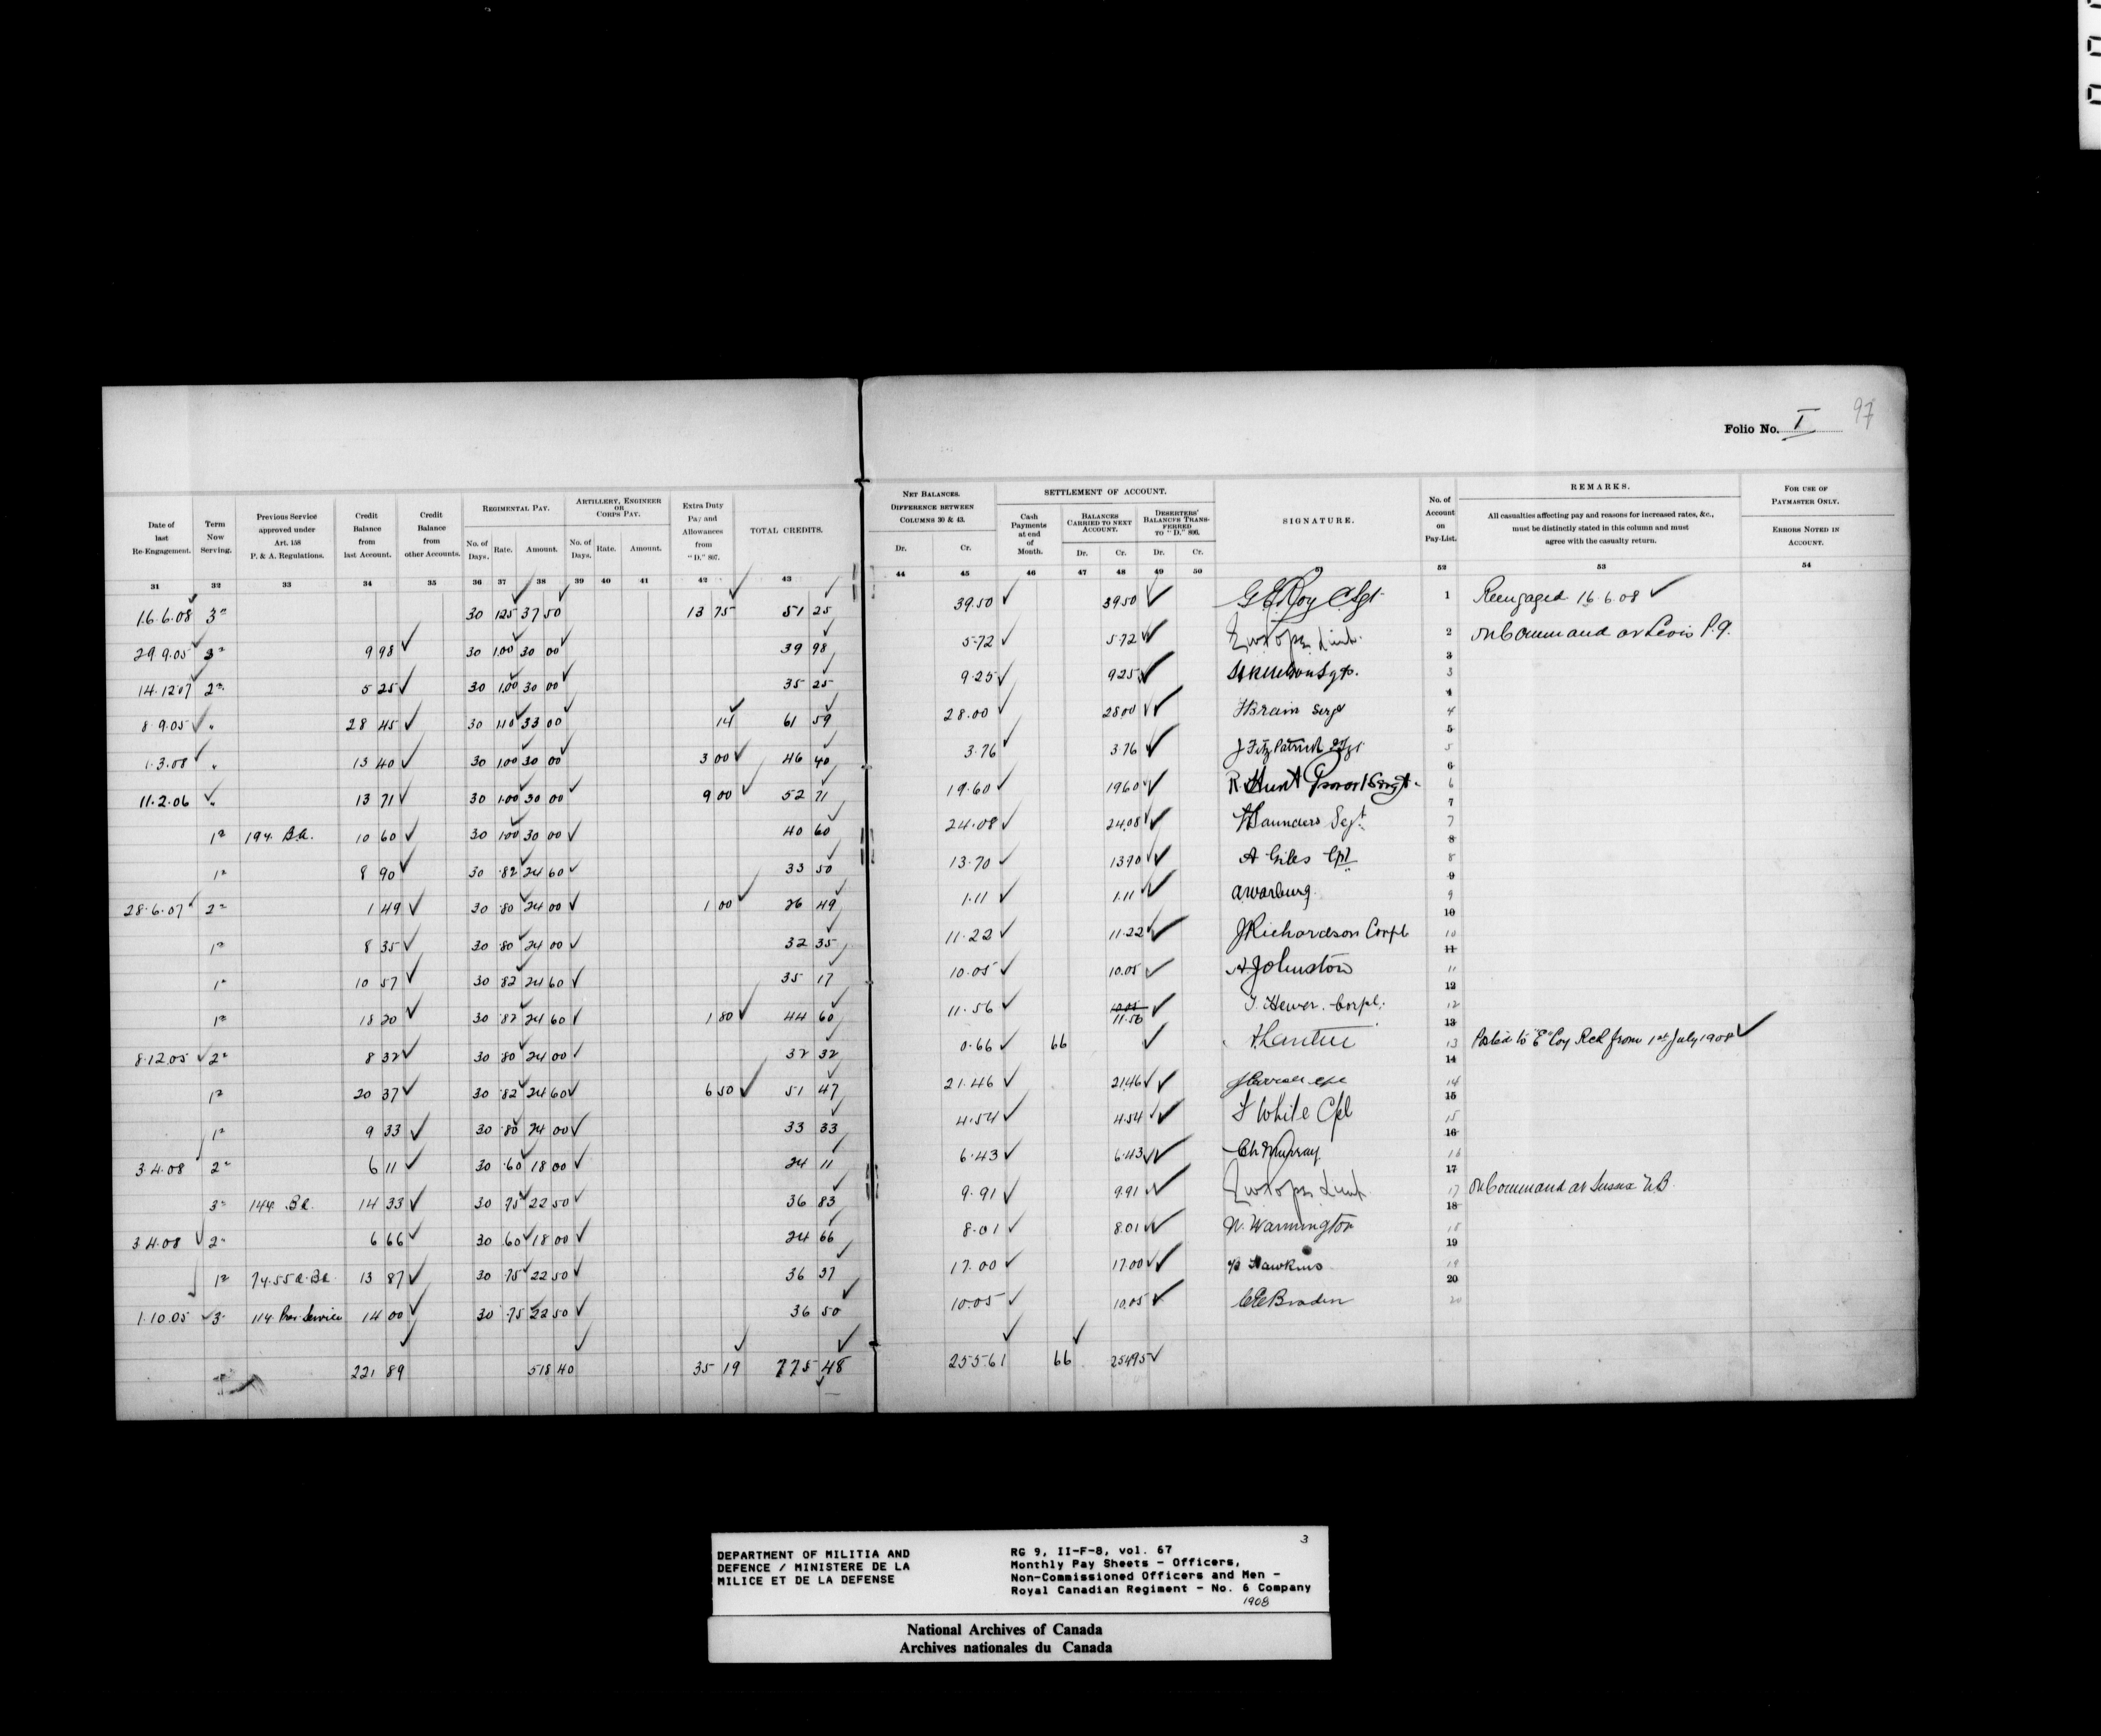 Folio No. I 97
Date of last Re-Engagement. Term Now Serving. Previous Service approved under Art. 158 P. & A. Regulations. Credit Balance from last Account. Credit Balance from other Accounts. REGIMENTAL PAY. No. of Days. Rate. Amount. ARTILLERY, ENGINEER OR CORPS PAY. No. of Days. Rate. Amount. Extra Duty Pay and Allowances from "D." 807. TOTAL CREDITS.
NET BALANCES. DIFFERENCE BETWEEN COLUMNS 30 & 43. Dr. Cr. SETTLEMENT OF ACCOUNT. Cash Payments at end of Month. BALANCES CARRIED TO NEXT ACCOUNT. Dr. Cr. DESERTERS' BALANCES TRANSFERRED TO "D." 806. Dr. Cr. SIGNATURE. No. of Account on Pay-List. REMARKS. All casualties affecting pay and reasons for increased rates, &c., must be distinctly stated in this column and must agree with the casualty return. FOR USE OF PAYMASTER ONLY. ERRORS NOTED IN ACCOUNT.
31 32 33 34 35 36 37 38 39 40 41 42 43 44 45 46 47 48 49 50 52 53 54
16.6.08 3 30 125 37 50 13 75 51 25 39.50 39 50 G E Roy C Sgt 1 Reengaged 16.6.08
29 9.05 3 9 98 30 1.00 30 00 39 98 5.72 5.72 2 On Command at Levis P.Q.
14.12 07 2 5 25 30 1.00 30 00 35 25 9.25 9 25 Sgt. 3
8 9.05 " 28 45 30 1 10 33 00 14 61 59 28.00 28 00 Sergt 4
1.3.08 " 13 40 30 1.00 30 00 3 00 46 40 3.76 3 76 J Fitzpatrick 5
11.2.06 " 13 71 30 1.00 30 00 9 00 52 71 19.60 19 60 R. Hunt 6
1 194. 10 60 30 1 00 30 00 40 60 24.08 24.08 Saunders Sergt 7
1 8 90 30 .82 24 60 33 50 13.70 13 70 A Giles Cpl 8
28.6.07 2 1 49 30 .80 24 00 1 00 26 49 1.11 1.11 A Warburg 9
1 8 35 30 .80 24 00 32 35 11.22 11.22 J Richardson Corpl 10
1 10 57 30 .82 24 60 35 17 10.05 10.05 A. Johnston 11
1 18 20 30 .82 24 60 1 80 44 60 11.56 10.05 11.56 T. Hewer. Corpl. 12
8.12.05 2 8 32 30 .80 24 00 32 32 0.66 66 13 Posted to "E" Coy Rcd from 1st July 1908
1 20 37 30 .82 24 60 6 50 51 47 21.46 21.46 14
1 9 33 30 .80 24 00 33 33 4.54 4.54 F White Cpl 15
3.4.08 2 6 11 30 .60 18 00 24 11 6.43 6.43 Murray 16
3 144. 14 33 30 .75 22 50 36 83 9.91 9.91 17 On Command at Sussex NB
3 4.08 2 6 66 30 .60 18 00 24 66 8.01 8.01 W. Warmington 18
1 13 87 30 .75 22 50 36 37 17.00 17.00 Hawkins 19
1.10.05 3 114. Service 14 00 30 .75 22 50 36 50 10.05 10.05 Braden 20
221 89 518 40 35 19 775 48 255.61 66 254.95
3
DEPARTMENT OF MILITIA AND
DEFENCE / MINISTERE DE LA
MILICE ET DE LA DEFENSE
RG 9, II-F-8, vol. 67
Monthly Pay Sheets - Officers,
Non-Commissioned Officers and Men -
Royal Canadian Regiment - No. 6 Company
1908
National Archives of Canada
Archives nationales du Canada